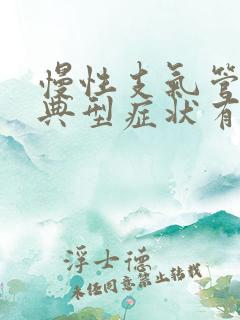 慢性支氣管
典型症狀有
浮士德
未经同意禁止转载